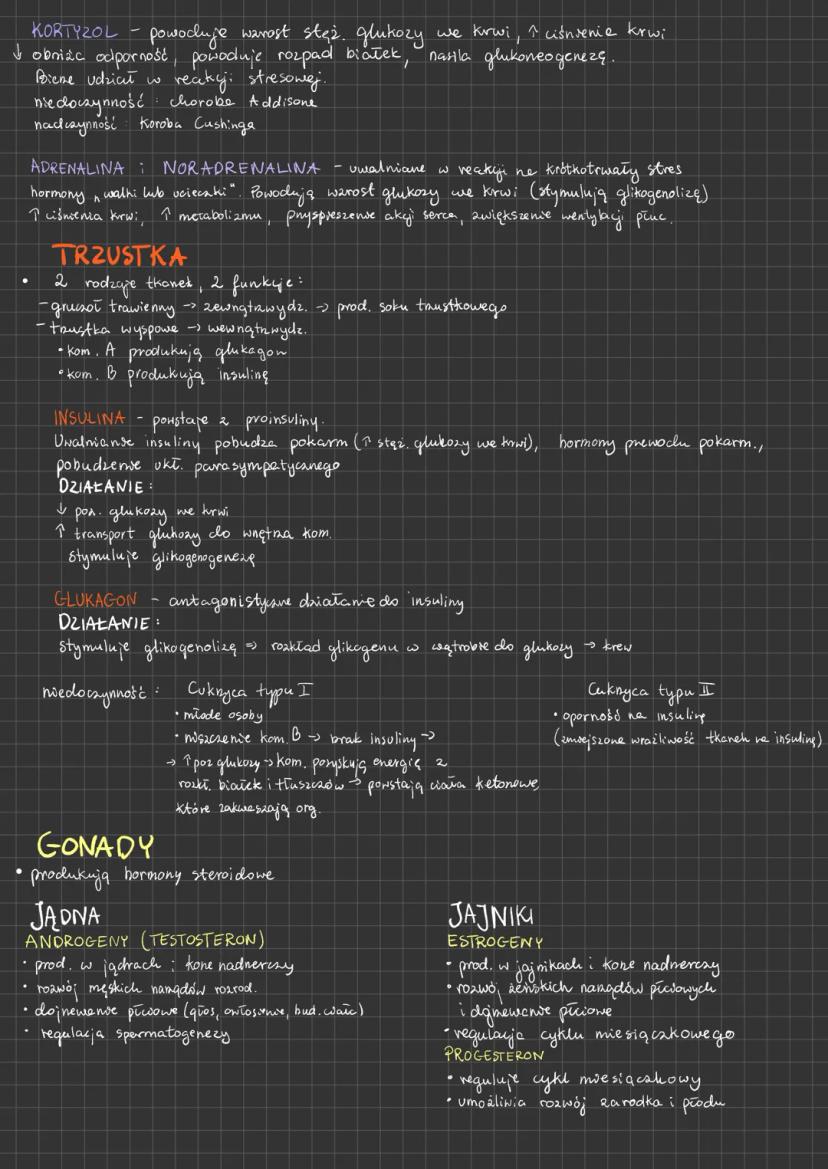 KORTYZOL - powoduje wzrost stęż. glukozy we krwi, ↑ ciśnienie krwi
↓ obniża odporność, powoduje rozpad białek, nasila glukoneogenezę.
Bierze udział w reakcji stresowej.
niedoczynność : choroba Addisona
nadczynność : Koroba Cushinga
ADRENALINA i NORADRENALINA - uwalniane w reakcji na krótkotrwały stres
hormony „walki lub ucieczki". Powodują wzrost glukozy we krwi (stymulują glikogenolizę)
↑ ciśnienia krwi, ↑ metabolizmu, przyspieszenie akcji serca, zwiększenie wentylacji płuc.
TRZUSTKA
• 2 rodzaje tkanek, 2 funkcje:
- gruczoł trawienny → zewnątrzwydz. → prod. soku trzustkowego
- trzustka wyspowa → wewnątrzwydz.
• kom. A produkują glukagon
• kom. B produkują insulinę
INSULINA - powstaje z proinsuliny.
Uwalnianie insuliny pobudza pokarm (↑ stęż. glukozy we krwi), hormony przewodu pokarm.,
pobudzenie ukł. parasympatycznego
DZIAŁANIE:
↓ poz. glukozy we krwi
↑ transport glukozy do wnętrza kom.
stymuluje glikogenogenezę
GLUKAGON - antagonistyczne działanie do insuliny
DZIAŁANIE:
stymuluje glikogenolizę => rozkład glikogenu w wątrobie do glukozy → krew
niedoczynność : Cukrzyca typu I
• młode osoby
• niszczenie kom. B → brak insuliny →
→ ↑ poz glukozy → kom. pozyskują energię z
rozkł. białek i tłuszczów → powstają ciała ketonowe,
które zakwaszają org.
Cukrzyca typu II
• oporność na insulinę
(zmniejszona wrażliwość tkanek na insulinę)
GONADY
• produkują hormony steroidowe
JĄDRA
ANDROGENY (TESTOSTERON)
• prod. w jądrach i korze nadnerczy
• rozwój męskich narządów rozrod.
• dojrzewanie płciowe (głos, owłosienie, bud. ciała)
• regulacja spermatogenezy
JAJNIKI
ESTROGENY
• prod. w jajnikach i korze nadnerczy
• rozwój żeńskich narządów płciowych
i dojrzewanie płciowe
• regulacja cyklu miesiączkowego
PROGESTERON
• reguluje cykl miesiączkowy
• umożliwia rozwój zarodka i płodu